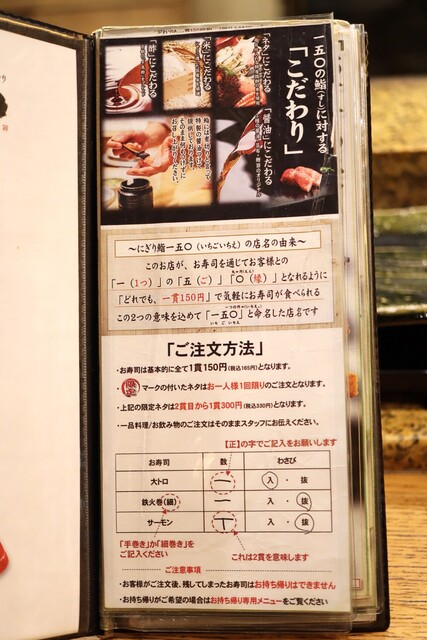 一五〇の鮨(すし)に対する
「こだわり」
「ネタ」にこだわる
「米」にこだわる
「酢」にこだわる
「醤油」にこだわる
お召し上がりください。
～にぎり鮨一五〇（いちごいちえ）の店名の由来～
このお店が、お寿司を通じてお客様との
「一（1つ）」の「五（ご）」「〇（縁）」となれるように
「どれでも、一貫150円」で気軽にお寿司が食べられる
この2つの意味を込めて「一五〇」と命名した店名です
いち ご いちえ
「ご注文方法」
・お寿司は基本的に全て1貫150円(税込165円)となります。
・限定マークの付いたネタはお一人様1回限りのご注文となります。
・上記の限定ネタは2貫目から1貫300円(税込330円)となります。
・一品料理/お飲み物のご注文はそのままスタッフにお伝えください。
【正】の字でご記入をお願いします
お寿司 数 わさび
大トロ 一 入・抜
鉄火巻(細) 一 入・抜
サーモン 丅 入・抜
「手巻き」か「細巻き」を
ご記入ください
これは2貫を意味します
ご注意事項
・お客様がご注文後、残してしまったお寿司はお持ち帰りはできません
・お持ち帰りがご希望の場合はお持ち帰り専用メニューをご覧ください